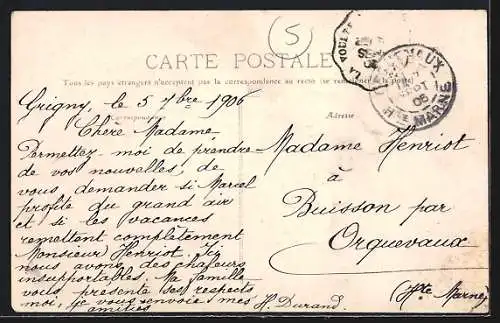 5
CARTE POSTALE
Tous les pays étrangers n'acceptent pas la correspondance au recto (se renseigner à la poste)
Correspondance
Adresse
LA VOULTE
HTE MARNE
Grigny, le 5 7bre 1906
Chère Madame,
Permettez-moi de prendre
de vos nouvelles, de
vous demander si Marcel
profite du grand air
et si les vacances
remettent complètement
Monsieur Henriot. Ici
nous avons des chaleurs
insupportables. Ma famille
vous présente ses respects
moi, je vous envoie mes
amitiés
H. Durand.
Madame Henriot
à
Buisson par
Orquevaux
(Hte Marne)